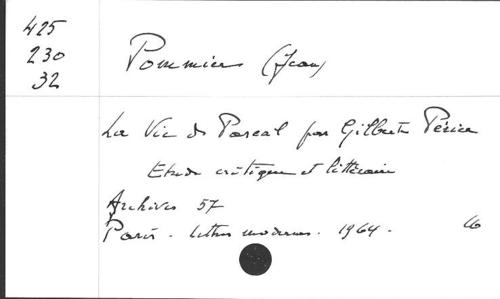 425
230
32
Pommier (Jean)
La Vie de Pascal par Gilberte Périer
Etude critique et littéraire
Archives 57
Paris - lettres modernes - 1964 -